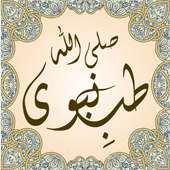 صلی اللہ
طبِ نبوی